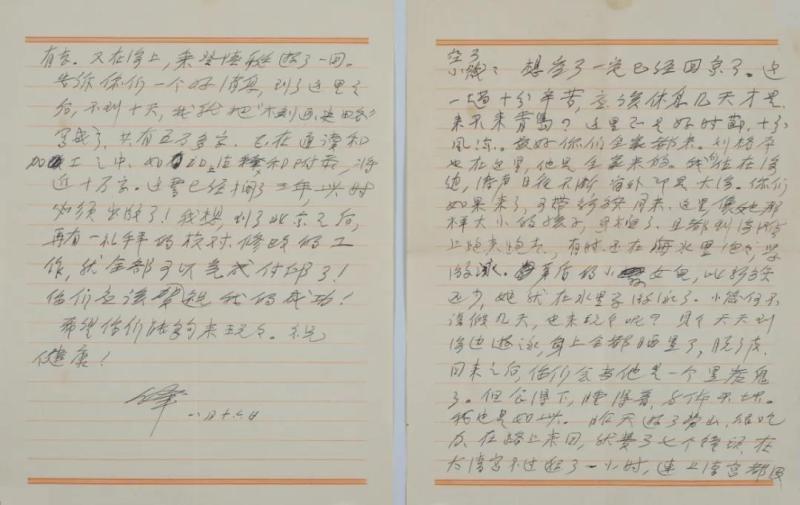 小箴：想空了一定已经回京了。这
一趟十分辛苦，应该休息几天才是。
来不来青岛？这里正是好时节，十分
风凉。最好你们全家都来。刘
也在这里，他是全家来的。我们住在海
边，涛声日夜不断，窗外即是大海。你们
如果来了，可带同来。这里，像她那
样大小的孩子，可多了。且都到海滩
上跑来跑去，有时还在海水里泡，学
游泳。的小女儿，比
还小，她就在水里学游泳了。小箴何不
请假几天，也来玩玩呢？天天到
海边游泳，身上全部晒黑了，脱了皮。
回来之后，你们会当他是一个黑炭鬼
了。但食得下，睡得着，身体不坏。
我也是如此。昨天游了崂山，很吃
力。在路上来回，就费了七个钟头。在
太清宫不过一小时，连上清宫都没
有去。又在海上，乘登陆艇游了一回。
告诉你们一个好消息，到了这里之
后，不到十天，我就把
写成了，共有五万多字。正在通读和
加工之中。如和附录，将
近十万字。这书已经搁了三年，此时
必须出版了！我想，到了北京之后，
再有一礼拜的核对、修改的工
作，就全部可以完成付印了！
你们应该我的成功！
希望你们能够来玩玩。祝
健康！
八月十六日